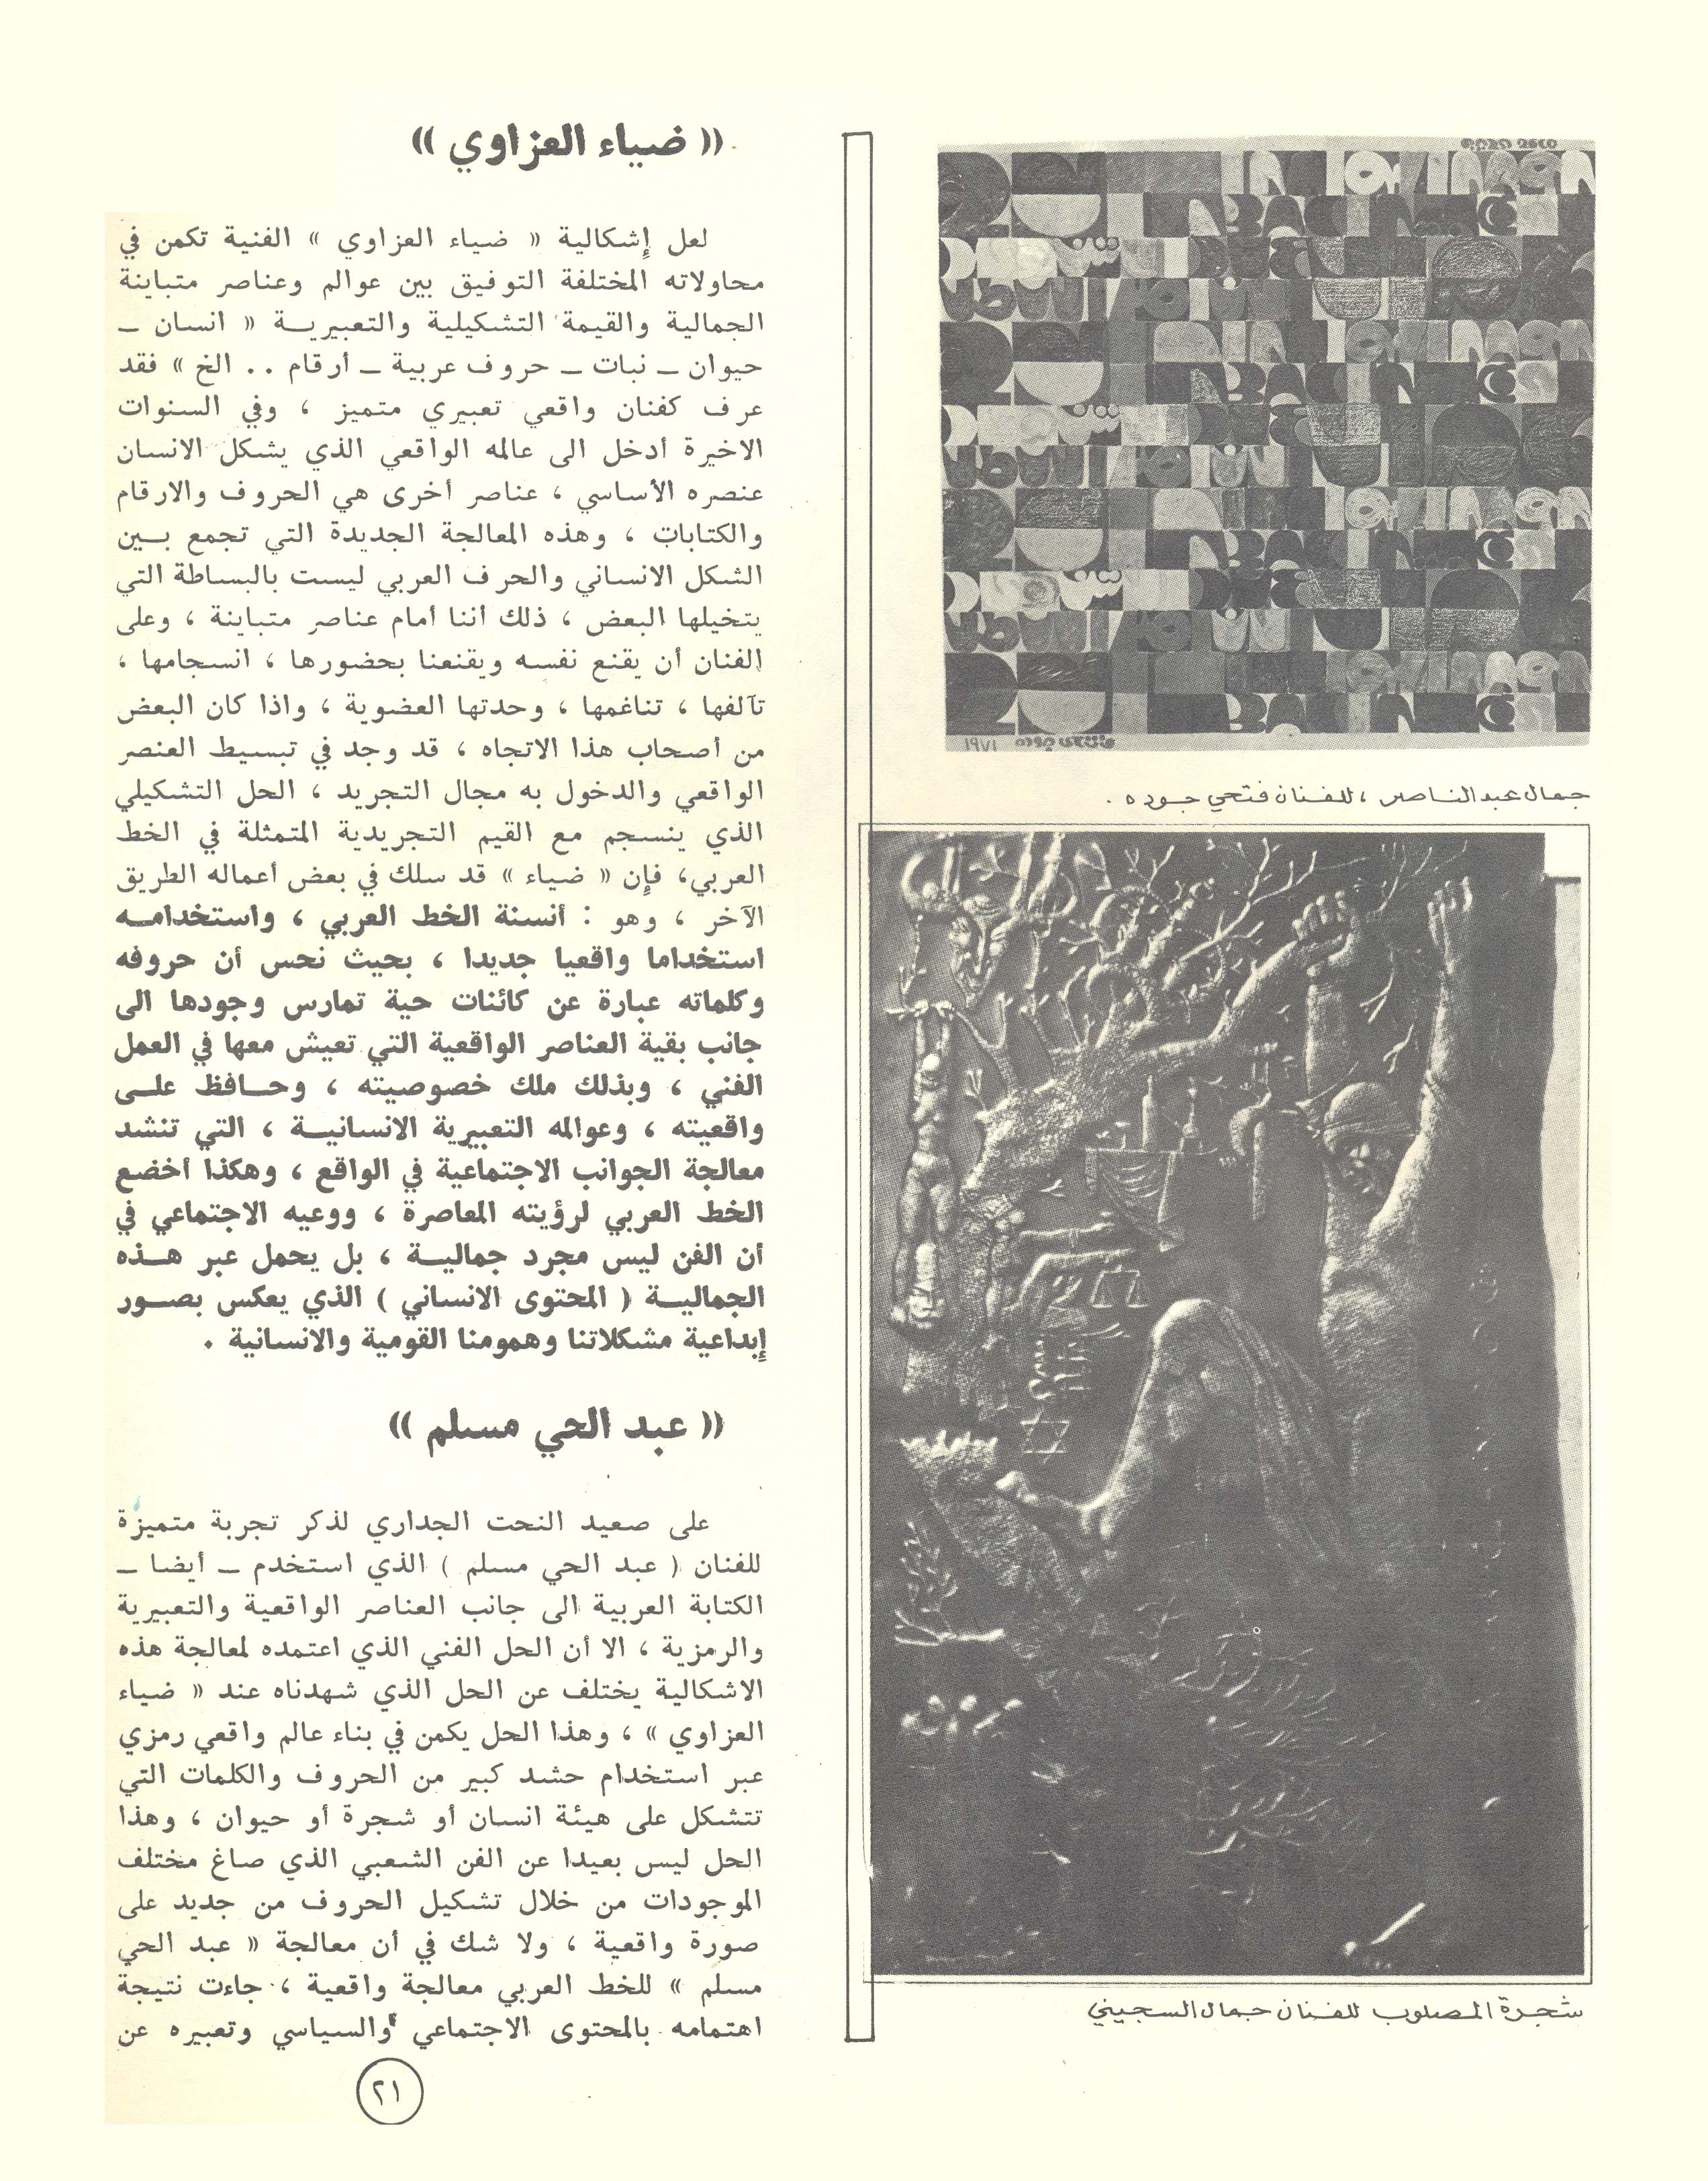 جمال عبد الناصر ، للفنان فتحي جوده .
شجرة المصلوب للفنان جمال السجيني
« ضياء العزاوي »
لعل إشكالية « ضياء العزاوي » الفنية تكمن في
محاولاته المختلفة التوفيق بين عوالم وعناصر متباينة
الجمالية والقيمة التشكيلية والتعبيريــة « انسان ــ
حيوان ــ نبات ــ حروف عربية ــ أرقام .. الخ » فقد
عرف كفنان واقعي تعبيري متميز ، وفي السنوات
الاخيرة أدخل الى عالمه الواقعي الذي يشكل الانسان
عنصره الأساسي ، عناصر أخرى هي الحروف والارقام
والكتابات ، وهذه المعالجة الجديدة التي تجمع بــين
الشكل الانساني والحرف العربي ليست بالبساطة التي
يتخيلها البعض ، ذلك أننا أمام عناصر متباينة ، وعلى
الفنان أن يقنع نفسه ويقنعنا بحضورها ، انسجامها ،
تآلفها ، تناغمها ، وحدتها العضوية ، واذا كان البعض
من أصحاب هذا الاتجاه ، قد وجد في تبسيط العنصر
الواقعي والدخول به مجال التجريد ، الحل التشكيلي
الذي ينسجم مع القيم التجريدية المتمثلة في الخط
العربي، فإن « ضياء » قد سلك في بعض أعماله الطريق
الآخر ، وهو : أنسنة الخط العربي ، واستخدامــه
استخداما واقعيا جديدا ، بحيث نحس أن حروفه
وكلماته عبارة عن كائنات حية تمارس وجودها الى
جانب بقية العناصر الواقعية التي تعيش معها في العمل
الفني ، وبذلك ملك خصوصيته ، وحــافظ علــى
واقعيته ، وعوالمه التعبيرية الانسانيــة ، التي تنشد
معالجة الجوانب الاجتماعية في الواقع ، وهكذا أخضع
الخط العربي لرؤيته المعاصرة ، ووعيه الاجتماعي في
أن الفن ليس مجرد جماليــة ، بل يحمل عبر هــذه
الجماليــة ( المحتوى الانساني ) الذي يعكس بصــور
إبداعية مشكلاتنا وهمومنا القومية والانسانية .
« عبد الحي مسلم »
على صعيد النحت الجداري لذكر تجربة متميزة
للفنان ( عبد الحي مسلم ) الذي استخدم ــ أيضا ــ
الكتابة العربية الى جانب العناصر الواقعية والتعبيرية
والرمزية ، الا أن الحل الفني الذي اعتمده لمعالجة هذه
الاشكالية يختلف عن الحل الذي شهدناه عند « ضياء
العزاوي » ، وهذا الحل يكمن في بناء عالم واقعي رمزي
عبر استخدام حشد كبير من الحروف والكلمات التي
تتشكل على هيئة انسان أو شجرة أو حيوان ، وهذا
الحل ليس بعيدا عن الفن الشعبي الذي صاغ مختلف
الموجودات من خلال تشكيل الحروف من جديد على
صورة واقعية ، ولا شك في أن معالجة « عبد الحي
مسلم » للخط العربي معالجة واقعية ، جاءت نتيجة
اهتمامه بالمحتوى الاجتماعي والسياسي وتعبيره عن
٢١